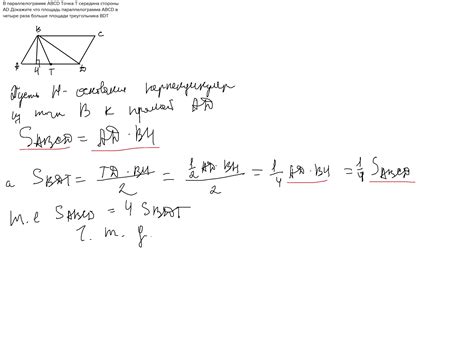 В параллелограмме ABCD Точка T середина стороны
AD.Докажите что площадь параллелограмма ABCD в
четыре раза больше площади треугольника BDT
B C
A H T D
Пусть H - основание перпендикуляр
из точки B к прямой AD
S_ABCD = AD · BH
а S_BDT = TD · BH / 2 = 1/2 AD · BH / 2 = 1/4 AD · BH = 1/4 S_ABCD
т. е S_ABCD = 4 S_BDT
ч. т. д.